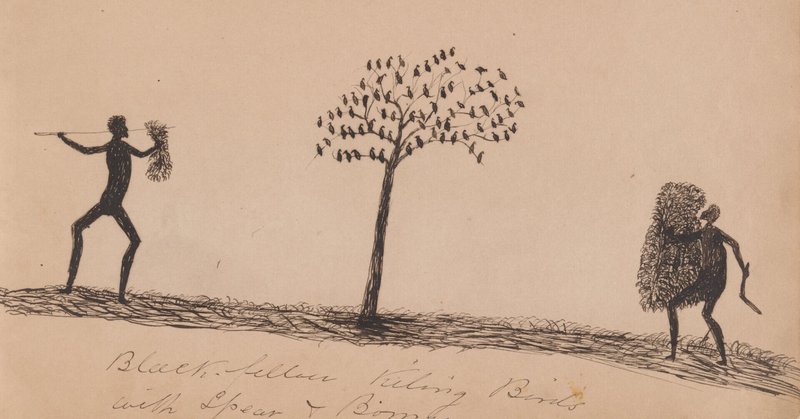 Black-fellow Killing Birds
with Spear &